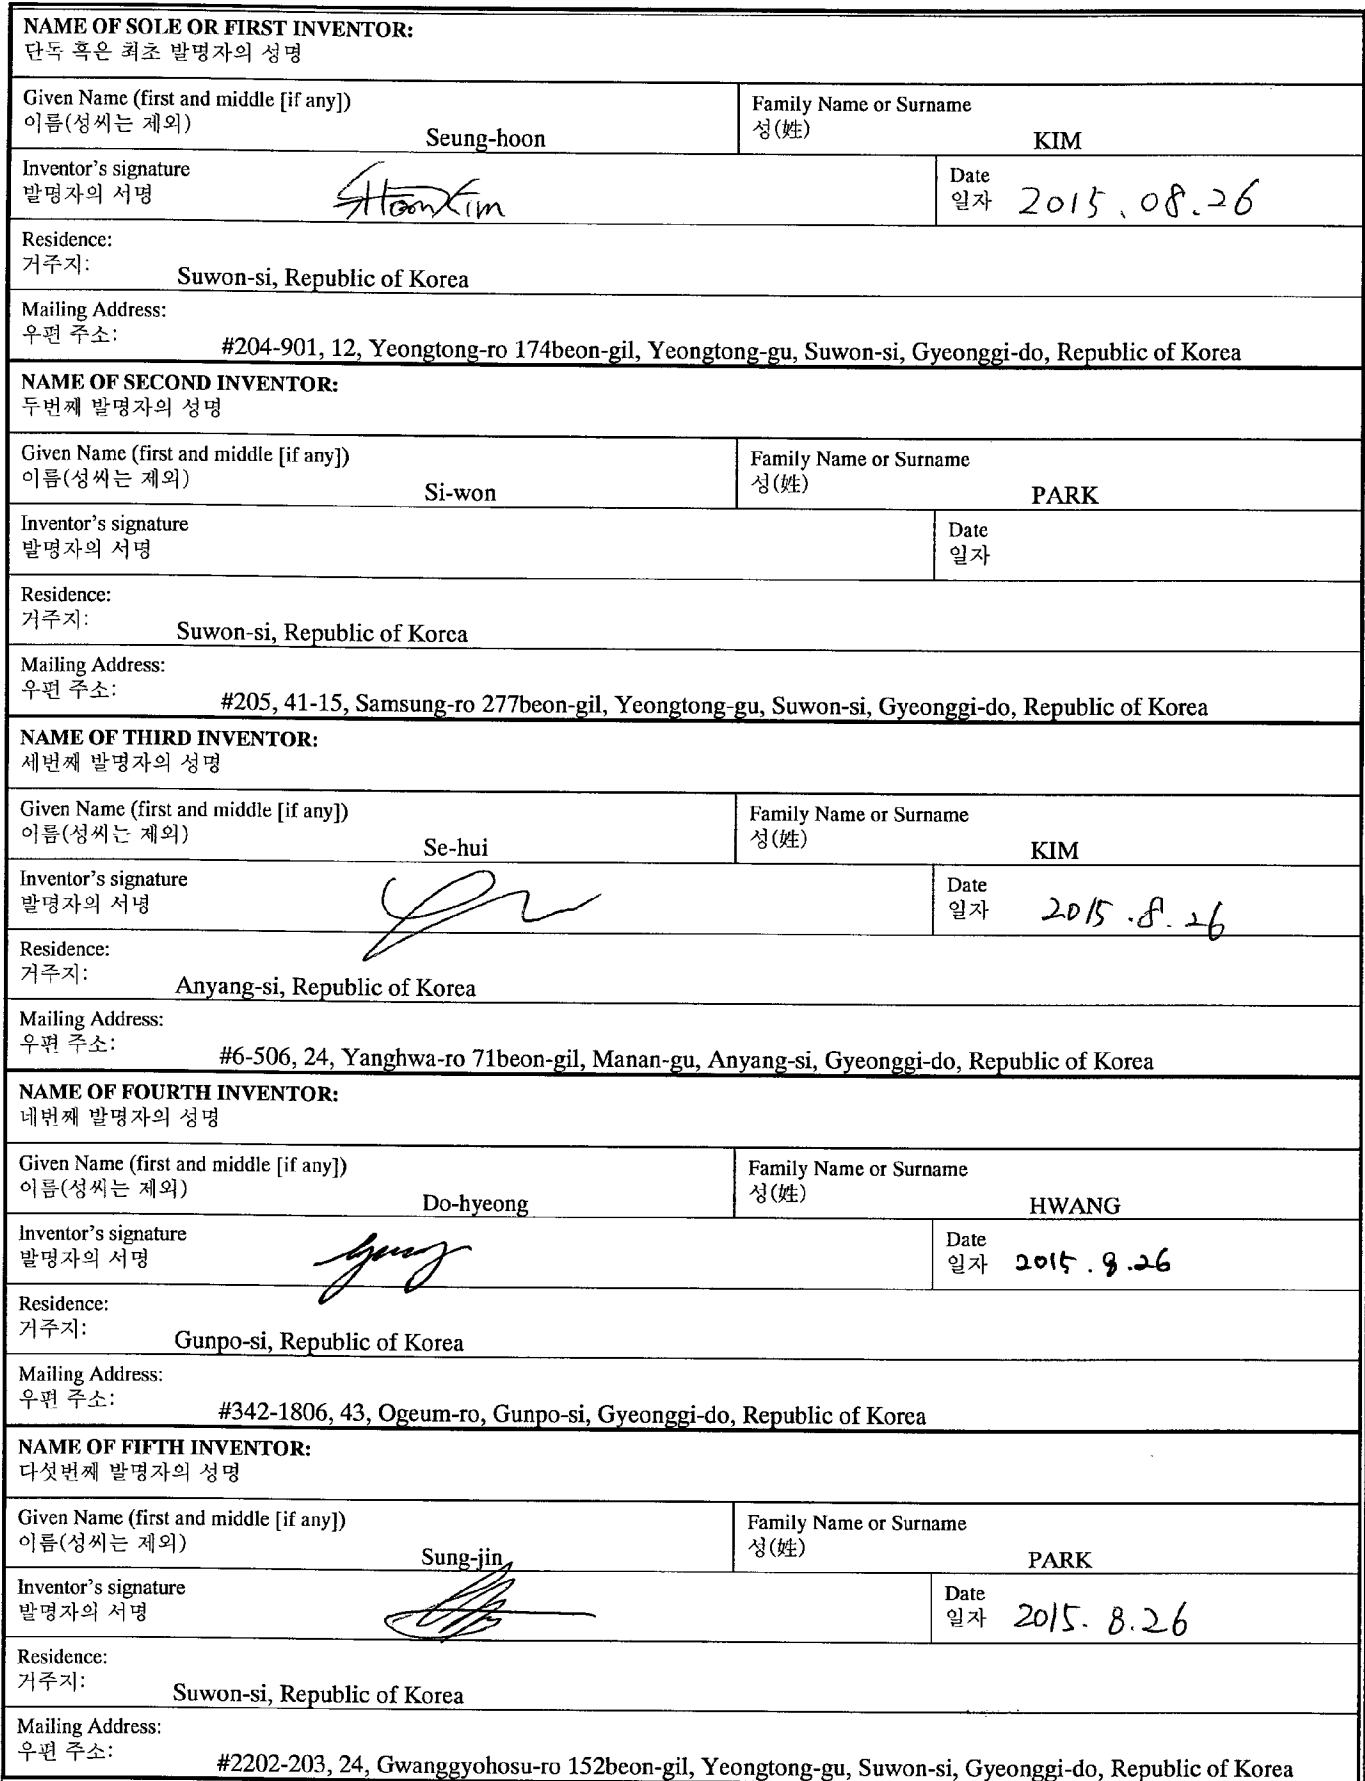 NAME OF SOLE OR FIRST INVENTOR:
단독 혹은 최초 발명자의 성명
Given Name (first and middle [if any])
이름(성씨는 제외)
Seung-hoon
Family Name or Surname
성(姓)
KIM
Inventor's signature
발명자의 서명
SHoonKim
Date
일자 2015.08.26
Residence:
거주지:
Suwon-si, Republic of Korea
Mailing Address:
우편 주소:
#204-901, 12, Yeongtong-ro 174beon-gil, Yeongtong-gu, Suwon-si, Gyeonggi-do, Republic of Korea
NAME OF SECOND INVENTOR:
두번째 발명자의 성명
Given Name (first and middle [if any])
이름(성씨는 제외)
Si-won
Family Name or Surname
성(姓)
PARK
Inventor's signature
발명자의 서명
Date
일자
Residence:
거주지:
Suwon-si, Republic of Korea
Mailing Address:
우편 주소:
#205, 41-15, Samsung-ro 277beon-gil, Yeongtong-gu, Suwon-si, Gyeonggi-do, Republic of Korea
NAME OF THIRD INVENTOR:
세번째 발명자의 성명
Given Name (first and middle [if any])
이름(성씨는 제외)
Se-hui
Family Name or Surname
성(姓)
KIM
Inventor's signature
발명자의 서명
Date
일자 2015.8.26
Residence:
거주지:
Anyang-si, Republic of Korea
Mailing Address:
우편 주소:
#6-506, 24, Yanghwa-ro 71beon-gil, Manan-gu, Anyang-si, Gyeonggi-do, Republic of Korea
NAME OF FOURTH INVENTOR:
네번째 발명자의 성명
Given Name (first and middle [if any])
이름(성씨는 제외)
Do-hyeong
Family Name or Surname
성(姓)
HWANG
Inventor's signature
발명자의 서명
Date
일자 2015.8.26
Residence:
거주지:
Gunpo-si, Republic of Korea
Mailing Address:
우편 주소:
#342-1806, 43, Ogeum-ro, Gunpo-si, Gyeonggi-do, Republic of Korea
NAME OF FIFTH INVENTOR:
다섯번째 발명자의 성명
Given Name (first and middle [if any])
이름(성씨는 제외)
Sung-jin
Family Name or Surname
성(姓)
PARK
Inventor's signature
발명자의 서명
Date
일자 2015. 8.26
Residence:
거주지:
Suwon-si, Republic of Korea
Mailing Address:
우편 주소:
#2202-203, 24, Gwanggyohosu-ro 152beon-gil, Yeongtong-gu, Suwon-si, Gyeonggi-do, Republic of Korea